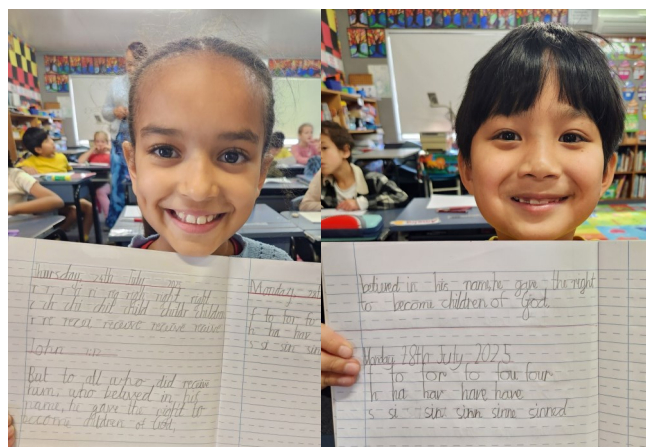 Thursday 24th July 2025
r ri rig righ right right
c ch chi chil child childr children
r re rec receive receive receive
John
But to all who did receive
him, who believed in his
name, he gave the right to
become children of God.
Monday
f fo for fo
h ha har
s si sin sinn
believed in his name, he gave the right
to become children of God.
Monday 28th July 2025
f fo for fo fou four
h ha har have have
s si sin sinn sinne sinned